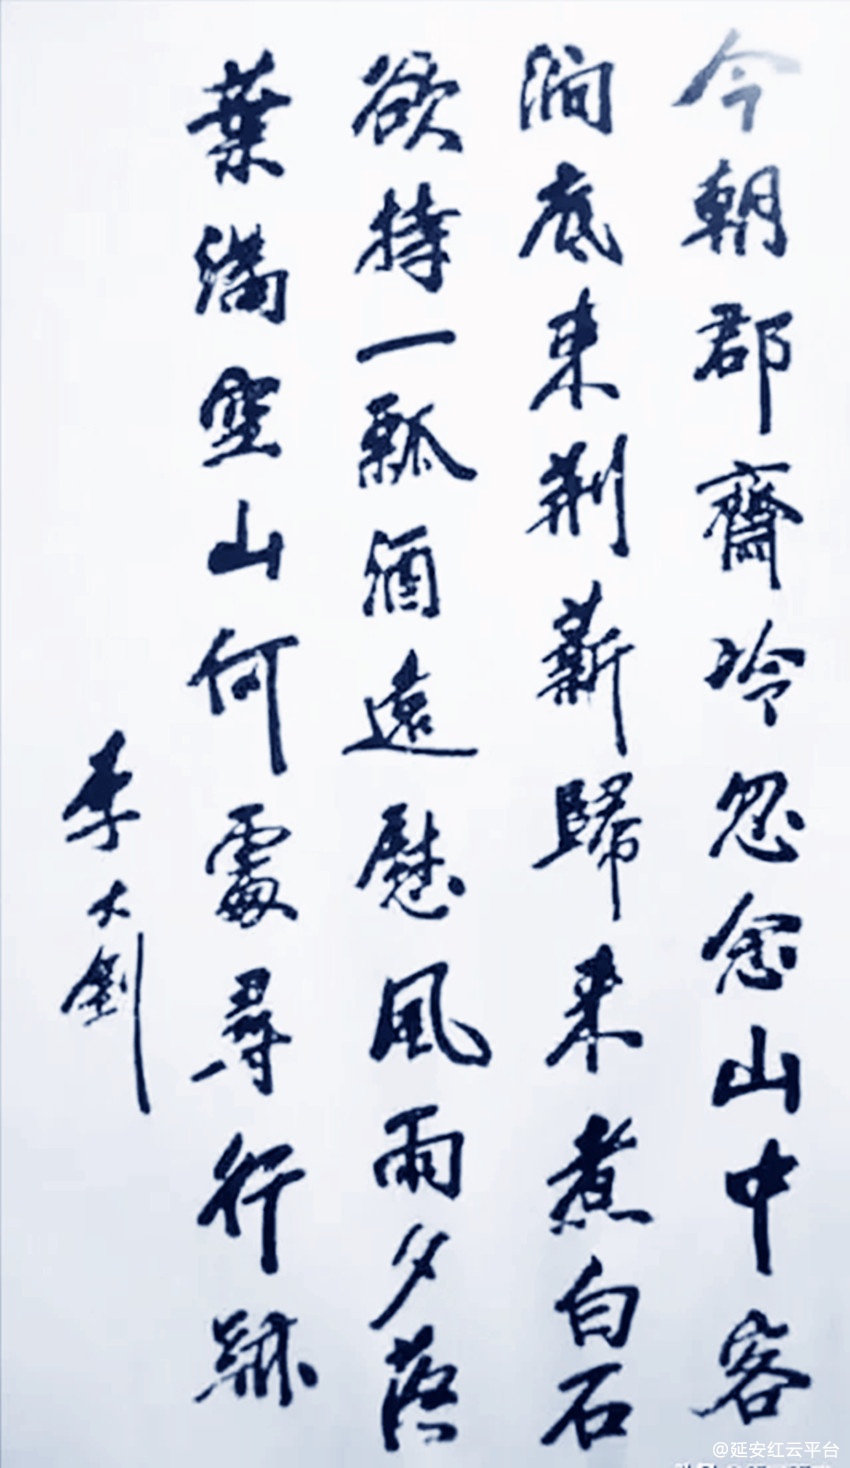 今朝郡齋冷忽念山中客
澗底束荆薪歸来煮白石
欲持一瓢酒遠慰風雨夕落
葉滿空山何處尋行跡
李大釗
@延安红云平台